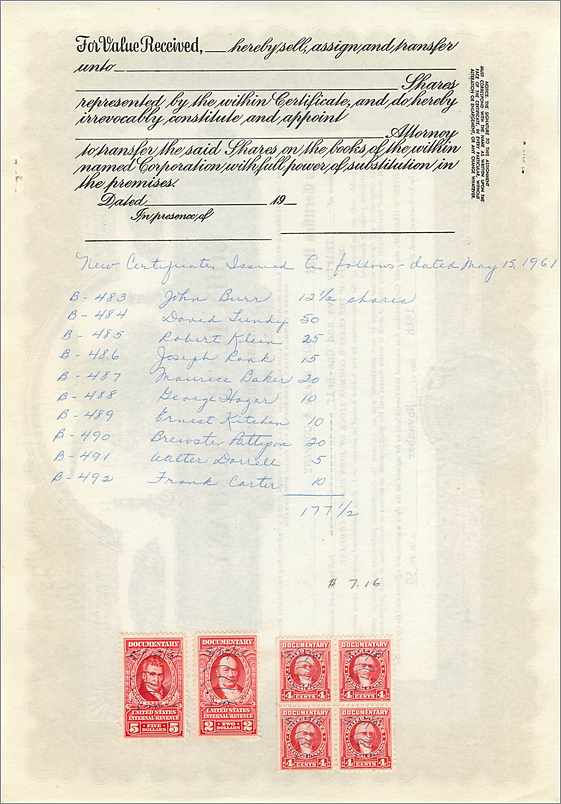 For Value Received, hereby sell, assign, and transfer
unto
Shares
represented by the within Certificate, and do hereby
irrevocably constitute and appoint
Attorney
to transfer the said Shares on the books of the within
named Corporation with full power of substitution in
the premises.
Dated 19
In presence of
NOTICE: THE SIGNATURE TO THIS ASSIGNMENT
MUST CORRESPOND WITH THE NAME AS WRITTEN UPON THE
FACE OF THE CERTIFICATE, IN EVERY PARTICULAR, WITHOUT
ALTERATION OR ENLARGEMENT, OR ANY CHANGE WHATEVER.
New Certificates Issued as follows - dated May 15, 1961
B - 483 John Burr 12 1/2 shares
B - 484 David Tundy 50
B - 485 Robert Klein 25
B - 486 Joseph Rank 15
B - 487 Maurice Baker 20
B - 488 George Hogar 10
B - 489 Ernest Kitchen 10
B - 490 Brewster 20
B - 491 Walter Dorrell 5
B - 492 Frank Carter 10
177 1/2
$ 7.16
DOCUMENTARY
UNITED STATES
INTERNAL REVENUE
5 FIVE DOLLARS 5
DOCUMENTARY
UNITED STATES
INTERNAL REVENUE
2 TWO DOLLARS 2
DOCUMENTARY
4 CENTS 4
DOCUMENTARY
4 CENTS 4
DOCUMENTARY
4 CENTS 4
DOCUMENTARY
4 CENTS 4